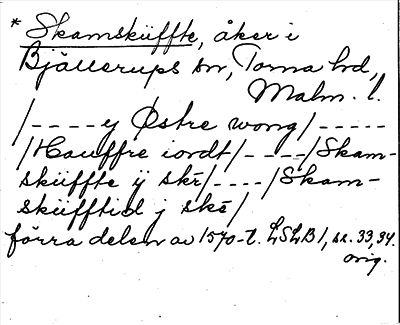 * Skamskiffte, åker i
Bjällerups sn, Torna hd,
Malm. l.
/---- ÿ Østre wong/-----
/Hauffre iordt/----/Skam-
skiffte ÿ skr/----/Skam-
skifftid j skr/
förra delen av 1570-t. LSLB 1, ss. 33, 34.
orig.